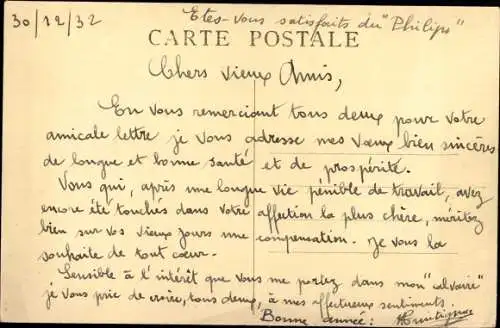 30/12/32
Etes-vous satisfaits du "Philips"
CARTE POSTALE
Chers Vieux Amis,
En vous remerciant tous deux pour votre
amicale lettre je vous adresse mes vœux bien sincères
de longue et bonne santé et de prospérité.
Vous qui, après une longue vie pénible de travail, avez
encore été touchés dans votre affection la plus chère, méritez
bien sur vos vieux jours une compensation. Je vous la
souhaite de tout cœur.
Sensible à l'intérêt que vous me portez dans mon "calvaire"
je vous prie de croire, tous deux, à mes affectueux sentiments.
Bonne année: